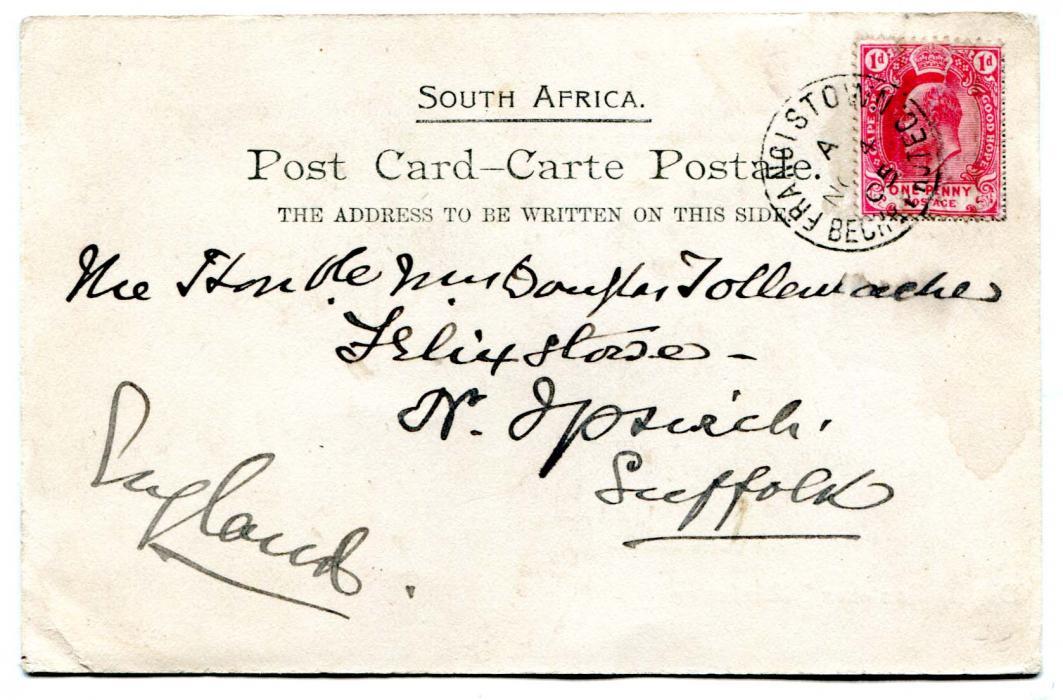 SOUTH AFRICA.
Post Card–Carte Postale.
THE ADDRESS TO BE WRITTEN ON THIS SIDE.
1d 1d
CAPE GOOD HOPE
ONE PENNY
POSTAGE
FRANCISTOWN
A
NO
The Honble Mrs Douglas Tollemache
Felixstowe –
Nr. Ipswich.
Suffolk
England.